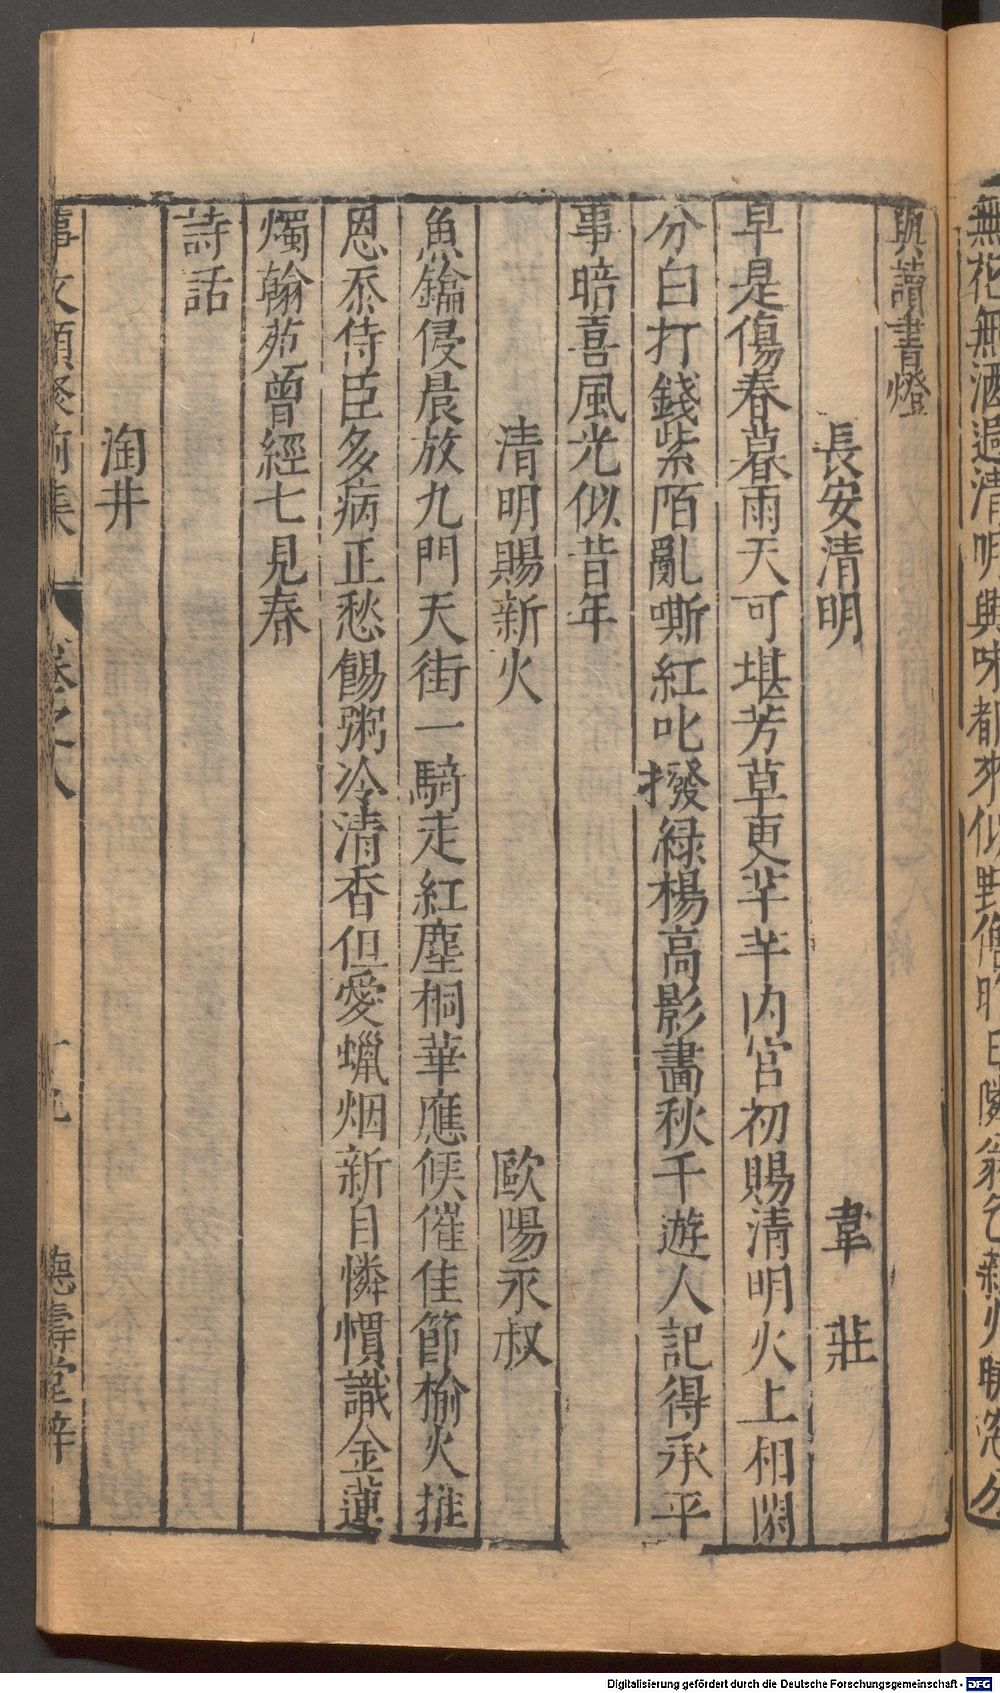 無花無酒過清明興味都來似野僧昨日隣翁乞新火曉窓分
與讀書燈
長安清明 韋 莊
早是傷春暮雨天可堪芳草更芊芊内官初賜清明火上相閑
分白打錢紫陌亂嘶紅叱撥緑楊高影畫秋千遊人記得承平
事暗喜風光似昔年
清明賜新火 歐陽永叔
魚鑰侵晨放九門天街一騎走紅塵桐華應候催佳節榆火推
恩忝侍臣多病正愁餳粥冷清香但愛蠟烟新自憐慣識金蓮
燭翰苑曾經七見春
詩話
淘井
事文類聚前集 卷之八 十九 德壽堂梓
Digitalisierung gefördert durch die Deutsche Forschungsgemeinschaft - DFG